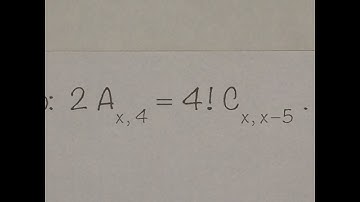 ): 2 A x, 4 = 4! C x, x-5 .